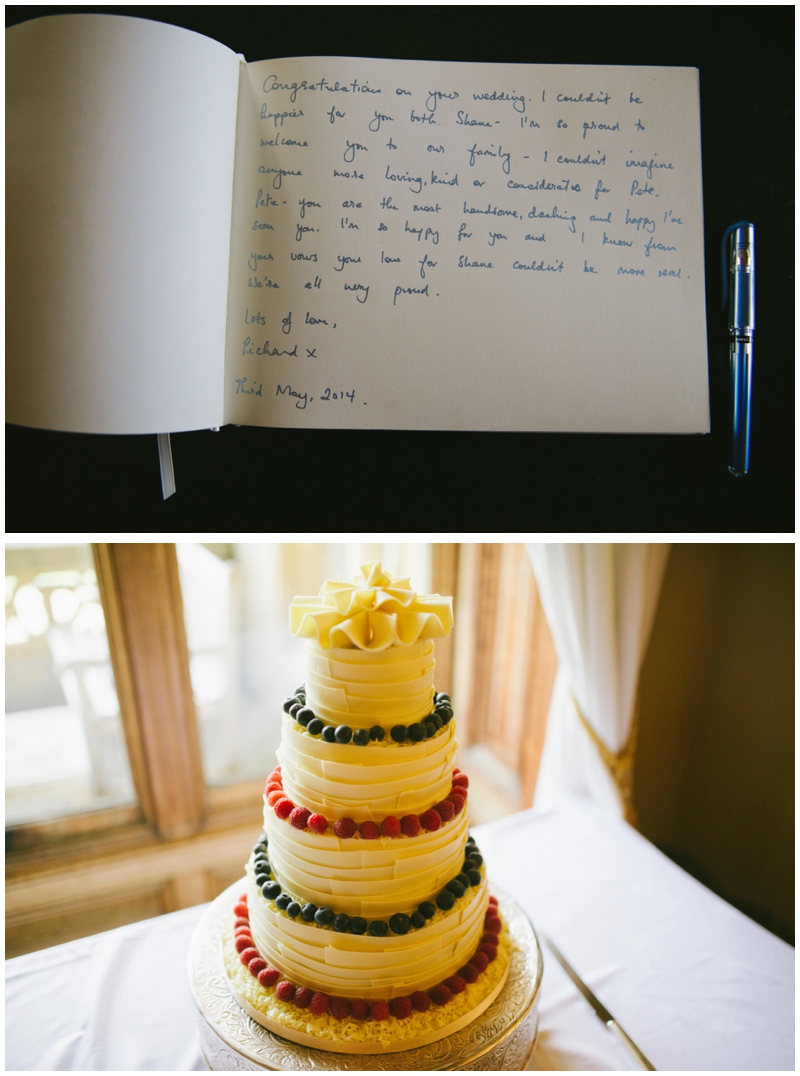 Congratulations on your wedding. I couldn't be
happier for you both. Shane- I'm so proud to
welcome you to our family - I couldn't imagine
anyone more loving, kind or considerate for Pete.
Pete- you are the most handsome, dashing and happy I've
seen you. I'm so happy for you and I know from
your vows your love for Shane couldn't be more real.
We're all very proud.
Lots of love,
Richard x
Third May, 2014.